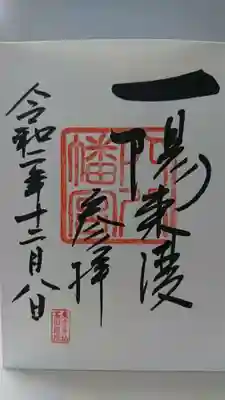 一陽来復
参拝
令和二年十二月八日
幡宮